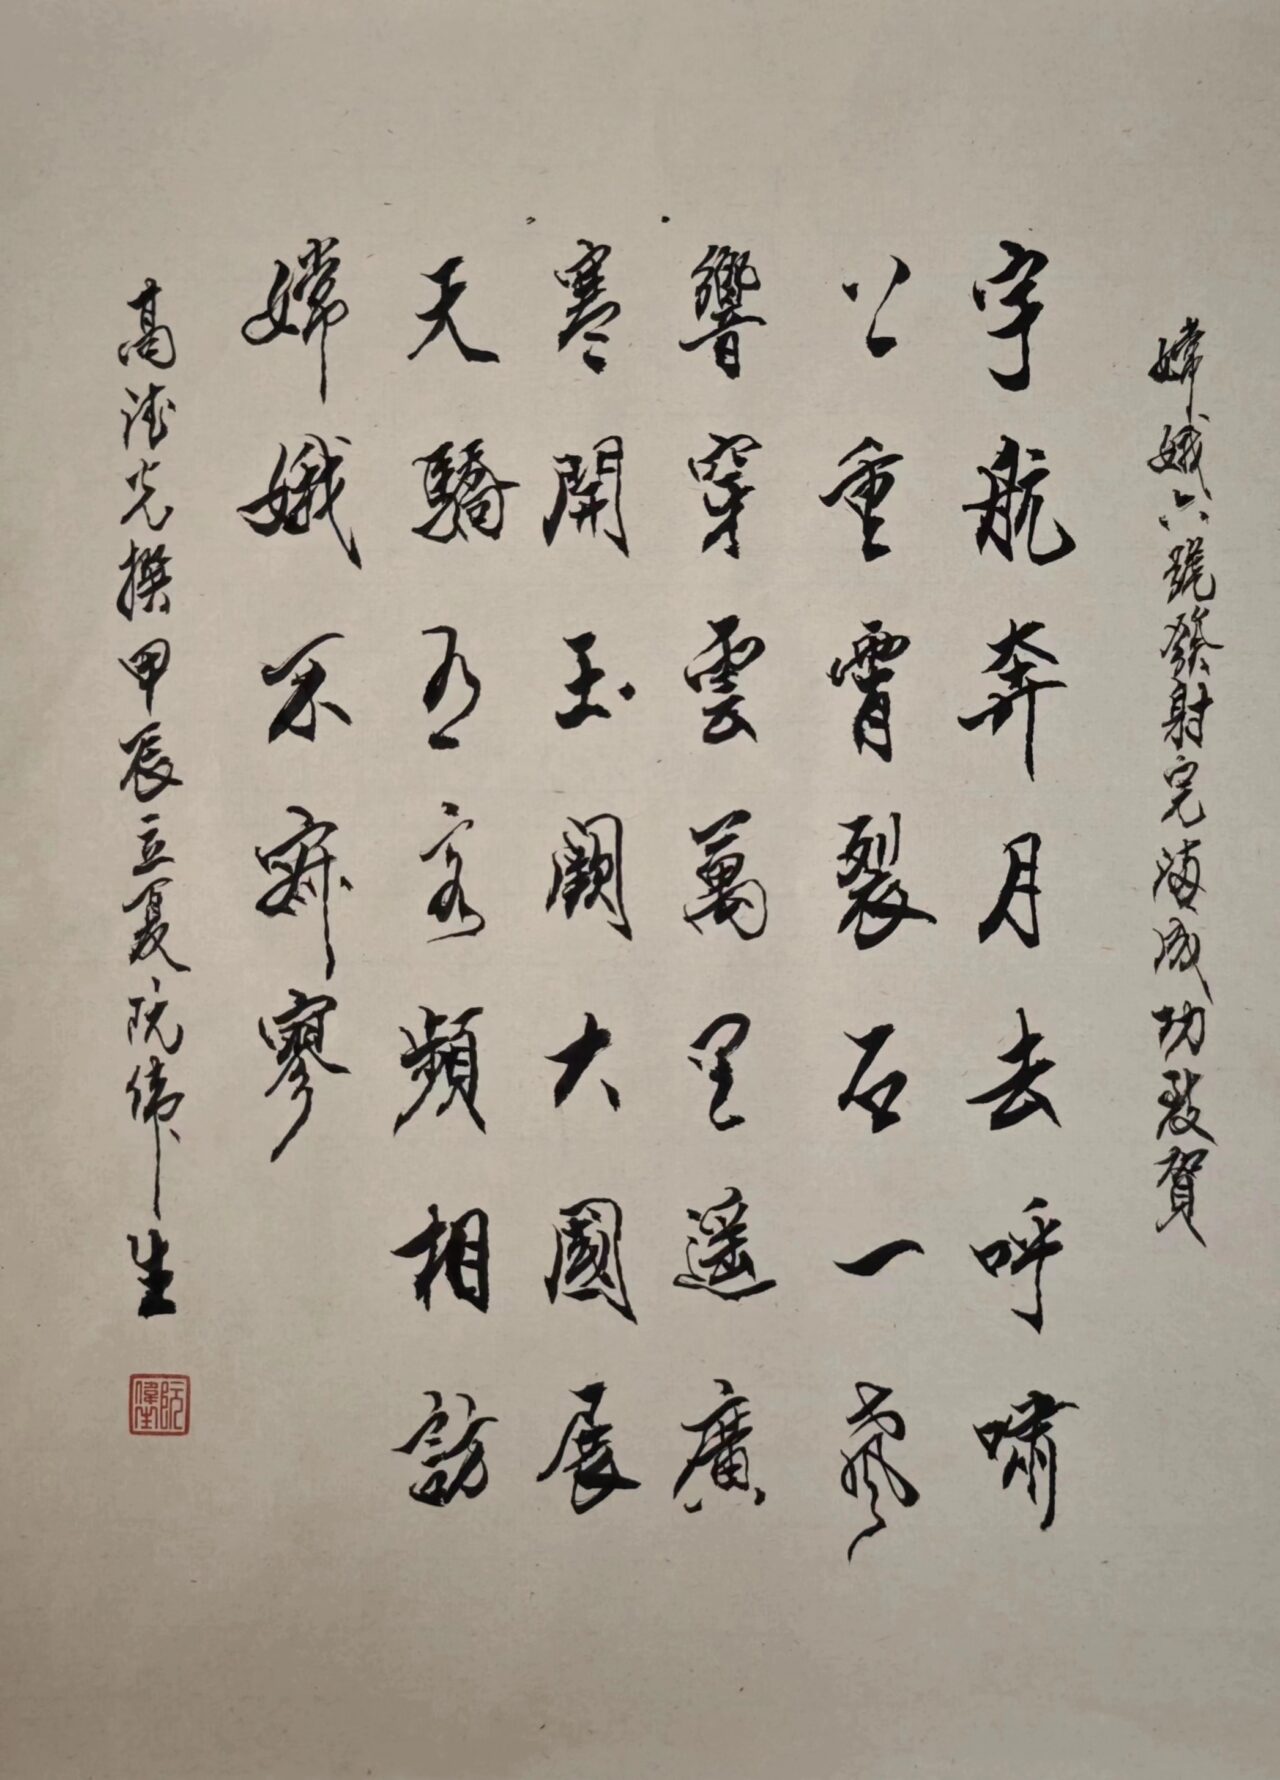 嫦娥六號發射完滿成功致賀
宇航奔月去呼嘯
上重霄裂石一聲
響穿雲萬里遙廣
寒開玉闕大國展
天驕有客頻相訪
嫦娥不寂寥
高德光撰甲辰立夏阮偉生
阮偉生